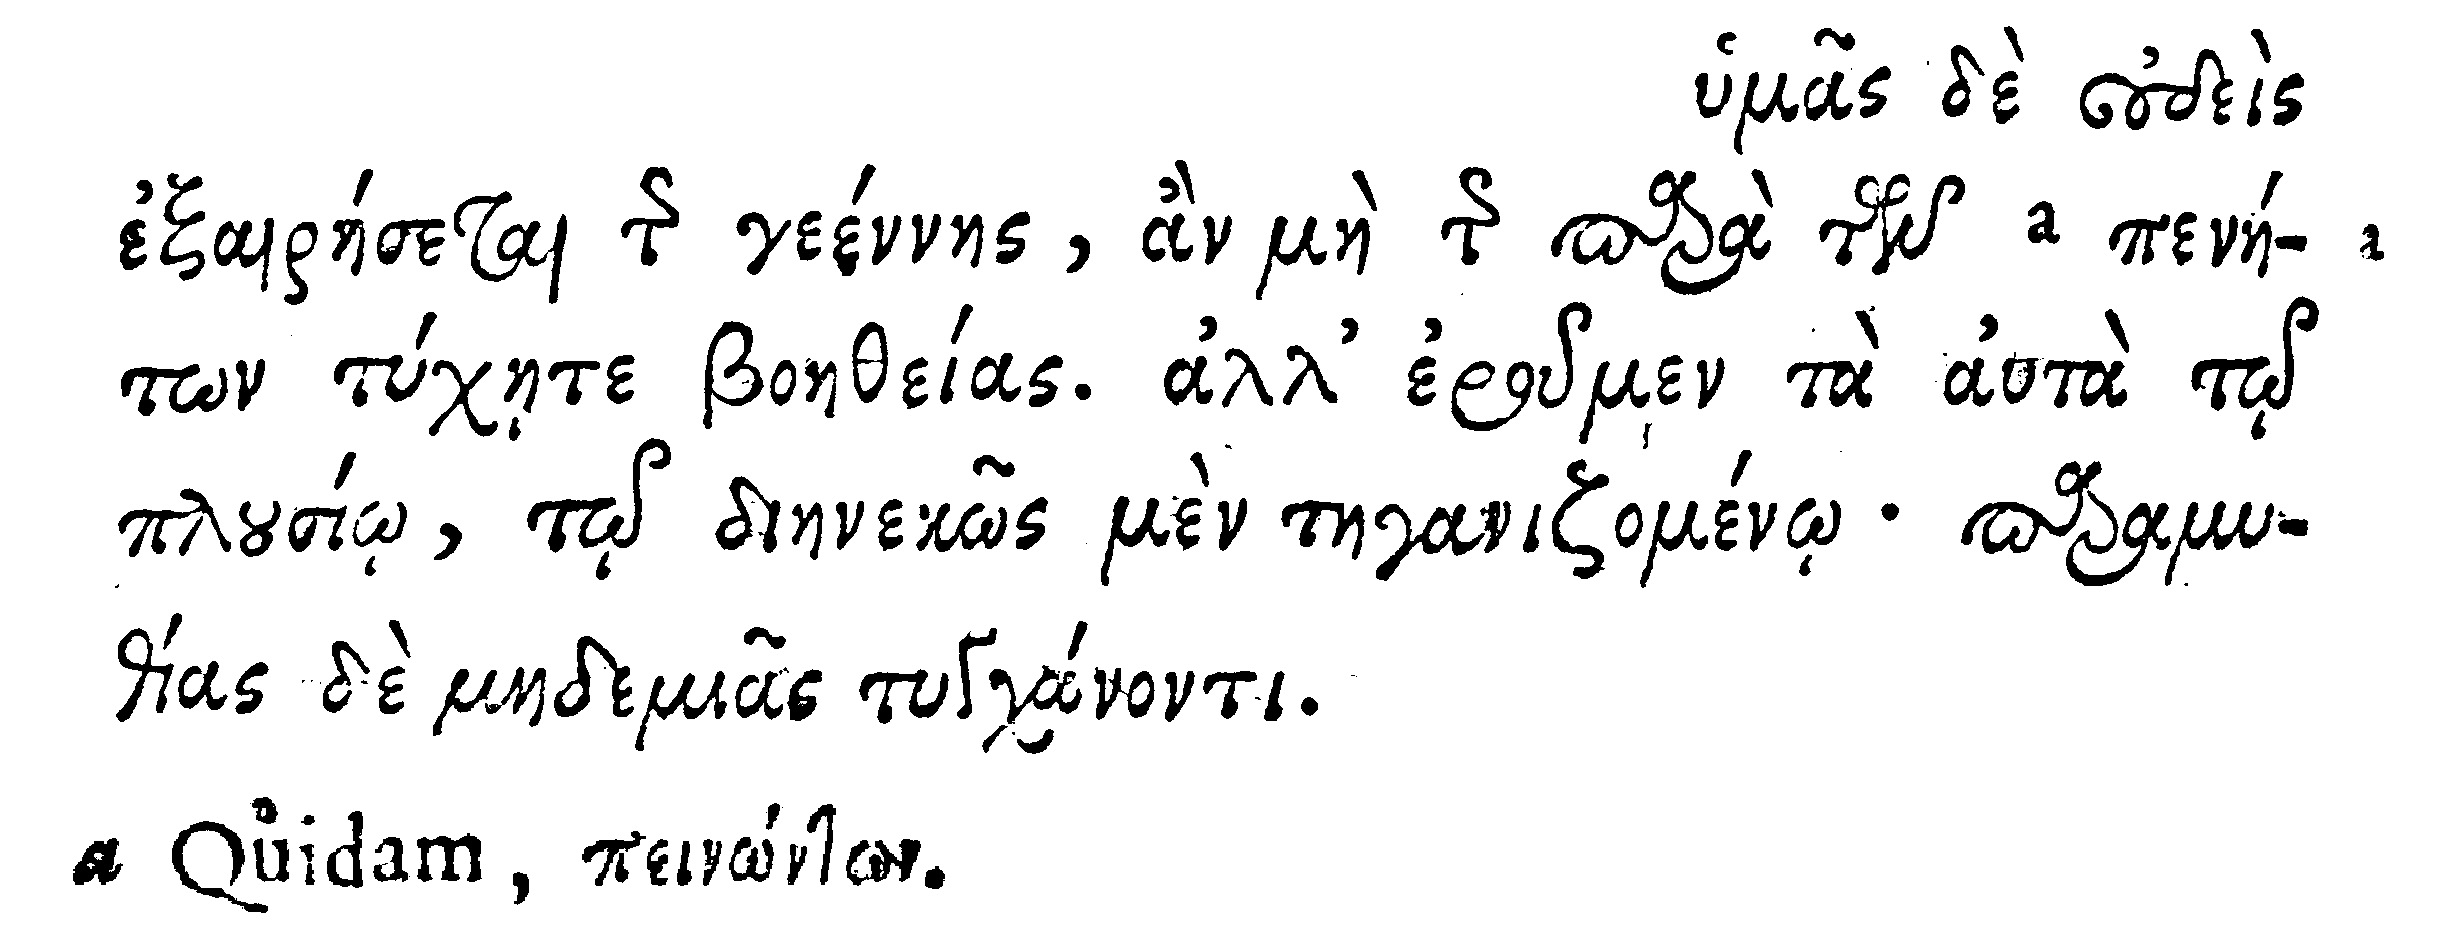 ὑμᾶς δὲ οὐδεὶς
ἐξαιρήσεται τῆς γεέννης, ἂν μὴ τῆς παρὰ τῶν a πενή- a
των τύχητε βοηθείας. ἀλλ’ ἐροῦμεν τὰ αὐτὰ τῷ
πλουσίῳ, τῷ διηνεκῶς μὲν τηγανιζομένῳ· παραμυ-
θίας δὲ μηδεμιᾶς τυγχάνοντι.
a Quidam, πεινώντων.